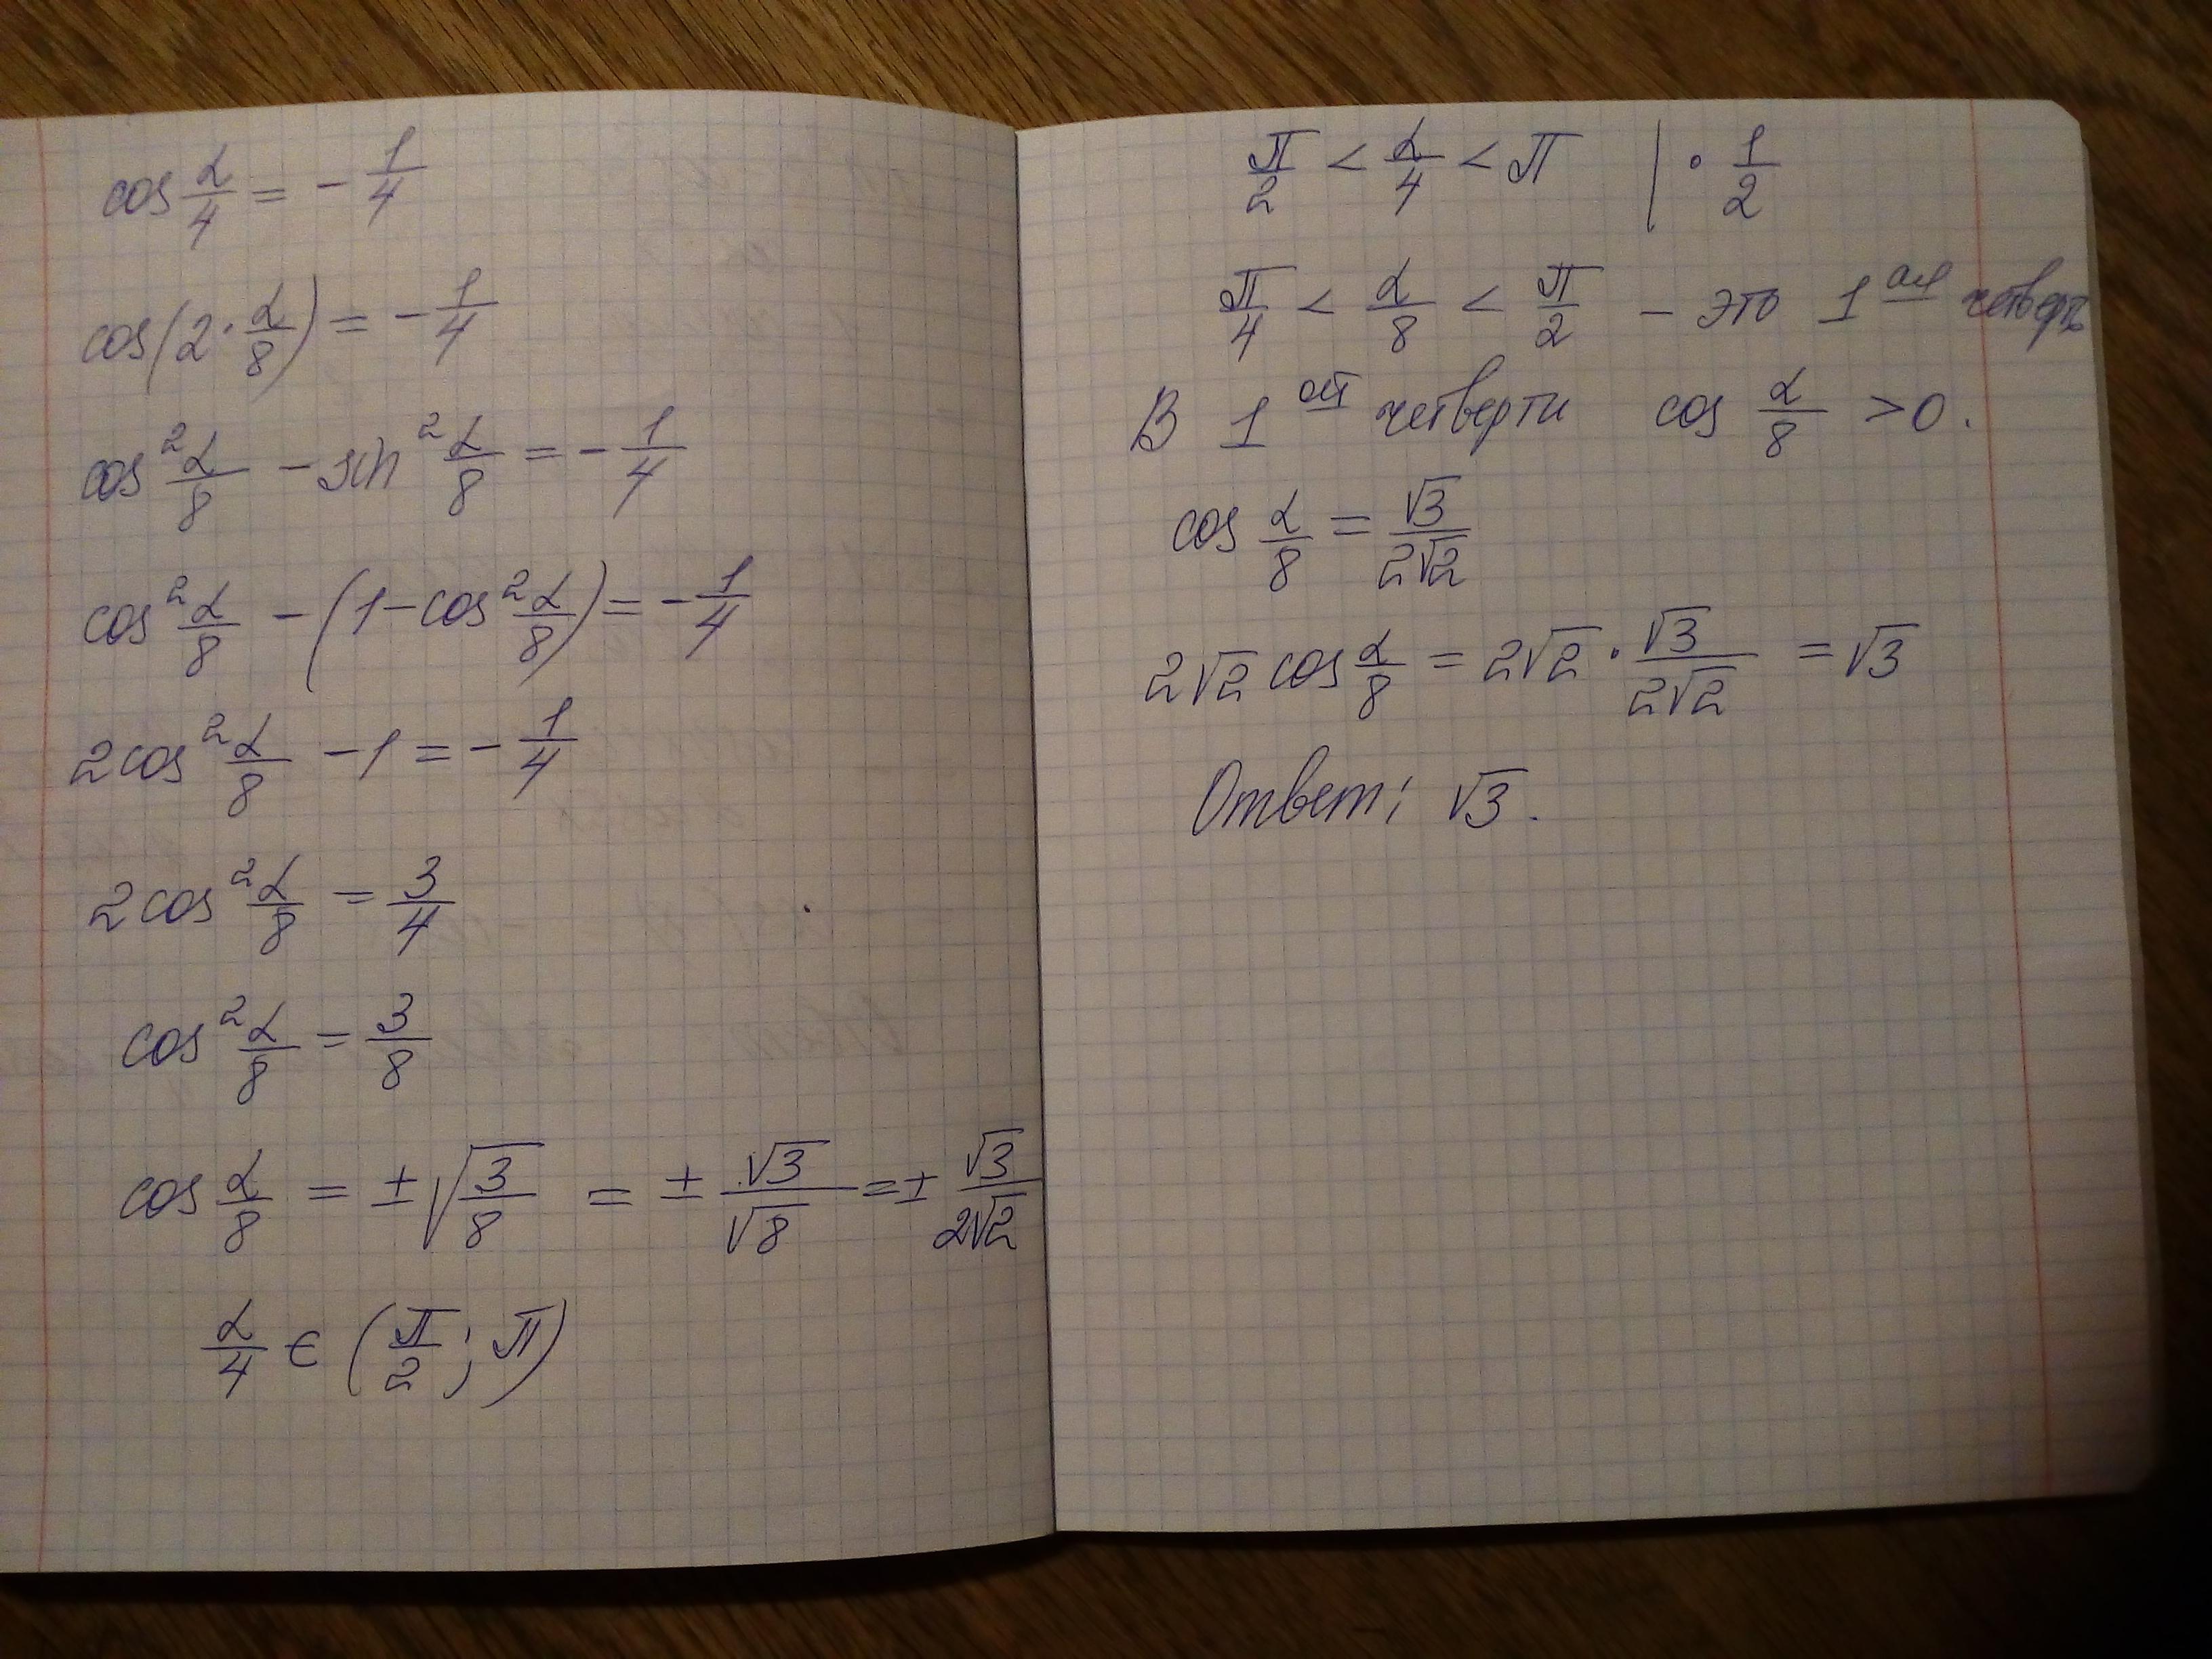 cos α/4 = - 1/4
cos(2 · α/8) = - 1/4
cos² α/8 - sin² α/8 = - 1/4
cos² α/8 - (1 - cos² α/8) = - 1/4
2cos² α/8 - 1 = - 1/4
2cos² α/8 = 3/4
cos² α/8 = 3/8
cos α/8 = ±√(3/8) = ± √3/√8 = ± √3/(2√2)
α/4 ∈ (π/2; π)
π/2 < α/4 < π | · 1/2
π/4 < α/8 < π/2 - это 1ая четверть
В 1ой четверти cos α/8 > 0.
cos α/8 = √3/(2√2)
2√2 cos α/8 = 2√2 · √3/(2√2) = √3
Ответ: √3.